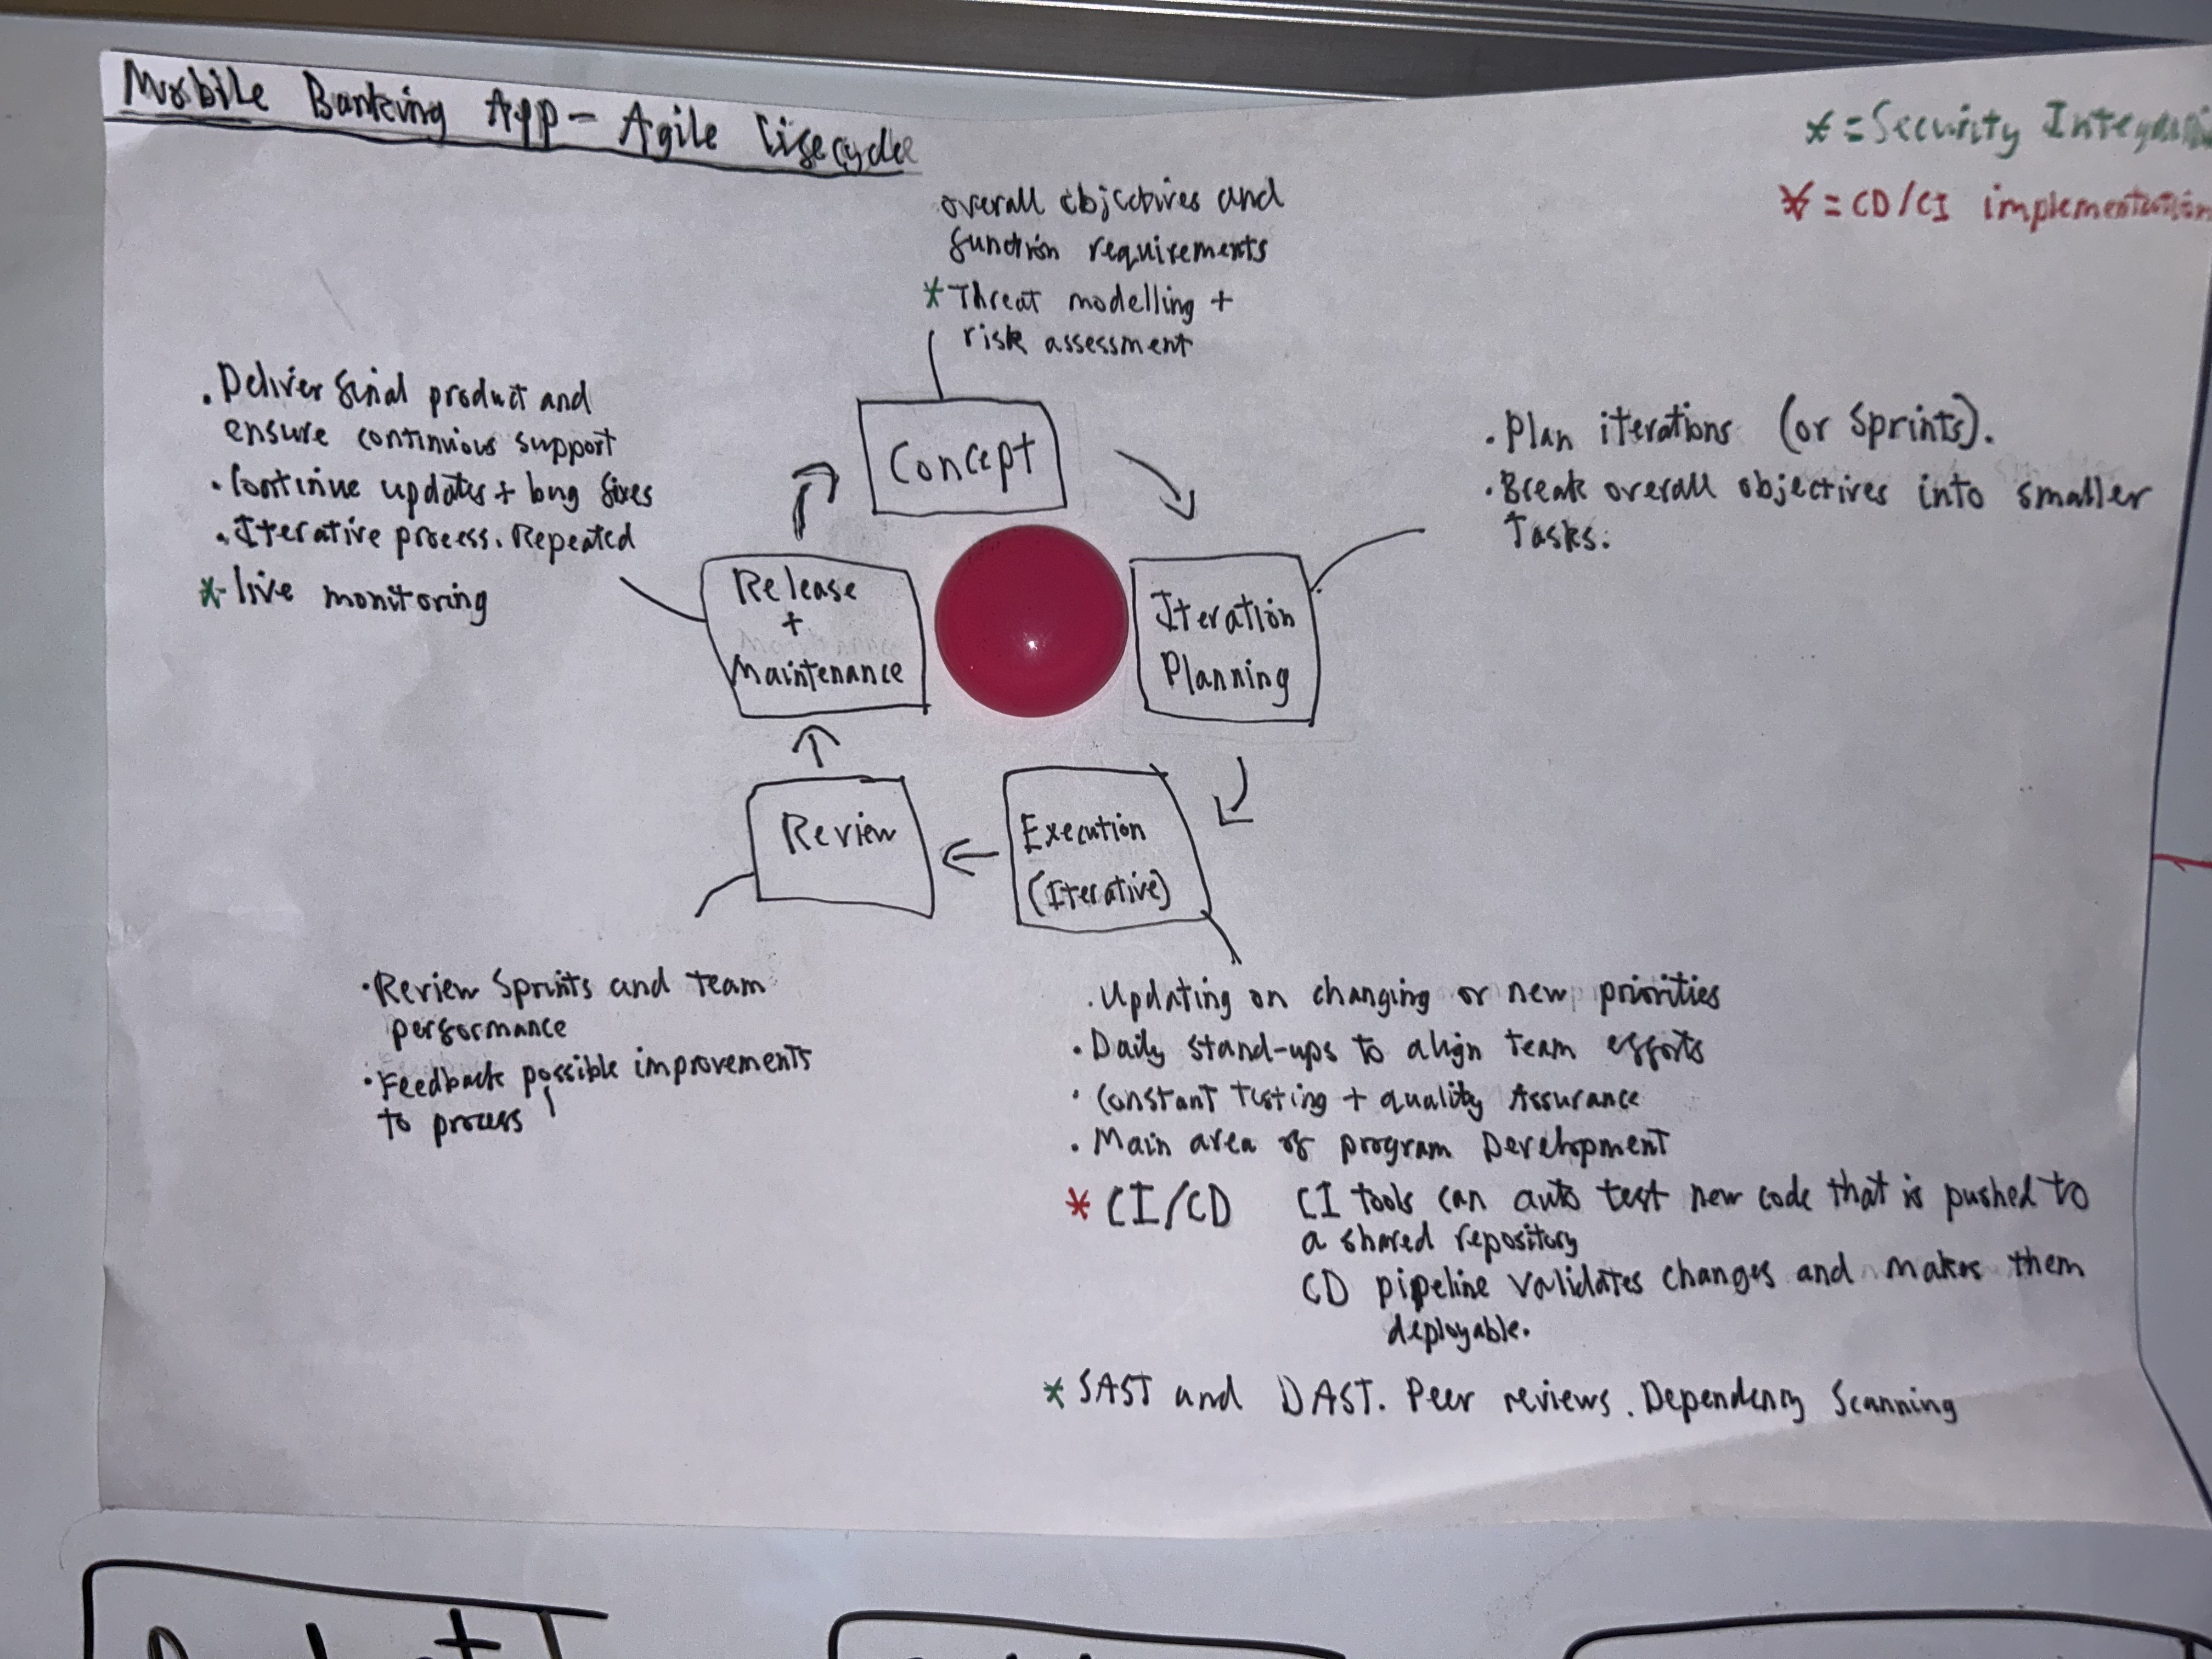 Mobile Banking App - Agile Lifecycle
* = Security
* = CD/CI implementation
overall objectives and
function requirements
* Threat modelling +
risk assessment
Concept
. Plan iterations (or Sprints).
. Break overall objectives into smaller
Tasks.
Iteration
Planning
Execution
(Iterative)
. Updating on changing or new priorities
. Daily stand-ups to align team efforts
. Constant Testing + quality Assurance
. Main area of program Development
* CI/CD CI tools can auto test new code that is pushed to
a shared repository
CD pipeline validates changes and makes them
deployable.
* SAST and DAST. Peer reviews. Dependency Scanning
Review
. Review Sprints and team
performance
. Feedback possible improvements
to process
Release
+
Maintenance
. Deliver final product and
ensure continuious support
. Continue updates + bug fixes
. Iterative process. Repeated
* live monitoring